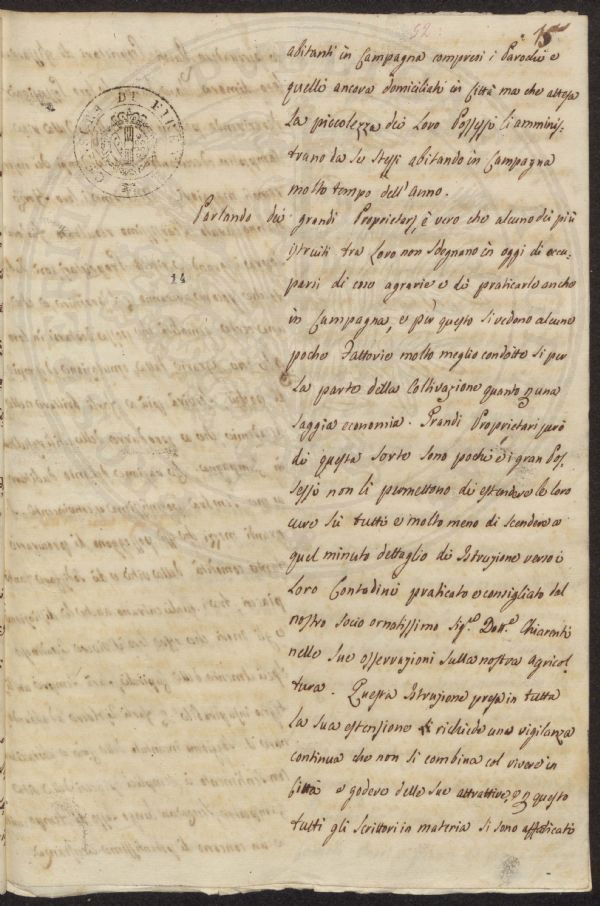 52
15
abitanti in Campagna compresi i Parochi e
quelli ancora domiciliati in Città ma che attesa
la piccolezza dei Loro Possessi li amminis-
trano da Se Stessi abitando in Campagna
molto tempo dell'Anno.
Parlando dei grandi Proprietarj, è vero che alcuno dei più
istruiti tra Loro non sdegnano in oggi di occu-
parsi di cose agrarie e di praticarle anche
in Campagna, e per questo si vedono alcune
poche Fattorie molto meglio condotte si per
la parte della Coltivazione quanto p una
saggia economia. Grandi Proprietari però
di questa sorte sono pochi e i gran Pos-
sessi non li permettono di estendere le loro
cure su tutti e molto meno di scendere a
quel minuto dettaglio di Istruzione verso i
Loro Contadini praticato e consigliato dal
nostro Socio ornatissimo Sig.re Dott.e Chiarenti
nelle sue osservazioni sulla nostra Agricol-
tura. Questa Istruzione presa in tutta
la sua estensione richiede una vigilanza
continua che non si combina col vivere in
Città e godere delle sue attrattive, e p questo
tutti gli scrittori in materia si sono affaticati
14